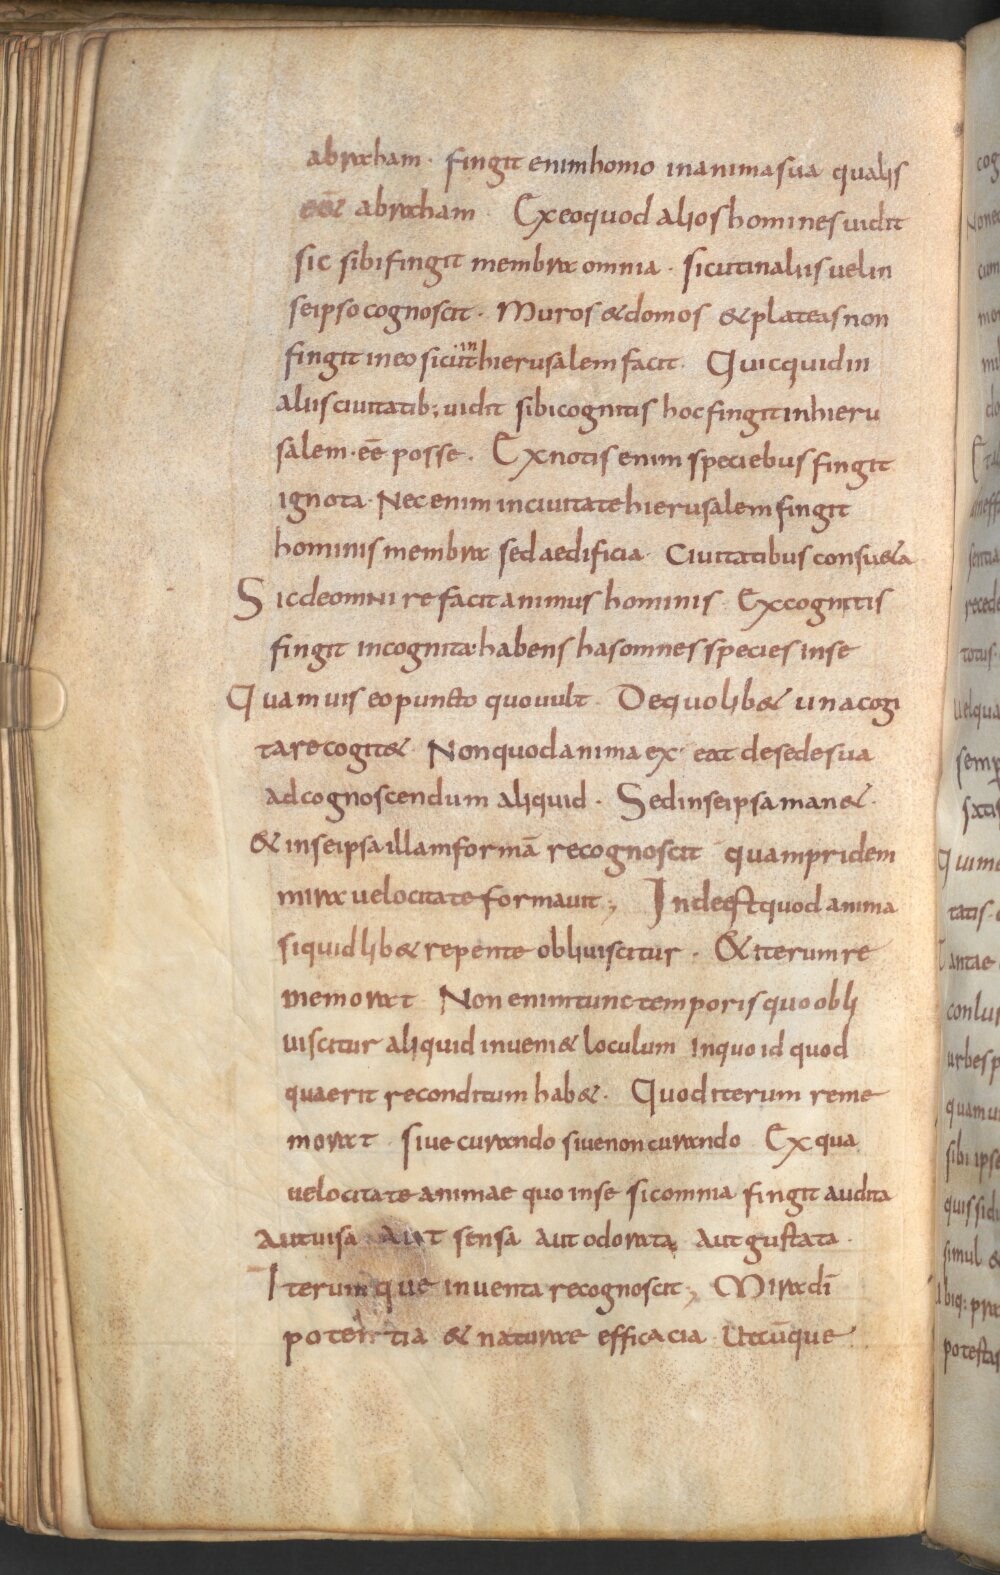 abraham · fingit enim homo inanima sua qualis
eēt abraham · Exeoquod alios homines uidit
sic sibi fingit membra omnia · sicut in aliis uel in
seipso cognoscit · Muros & domos & plateas non
fingit ineo sicut in hierusalem facit · Quicquid in
aliis ciuitatib; uidit sibi cognitis hoc fingit in hieru
salem · eē posse · Ex notis enim speciebus fingit
ignota · Nec enim in ciuitate hierusalem fingit
hominis membra sed aedificia · Ciuitatibus consu&a
Sic de omni re facit animus hominis · Ex cognitis
fingit incognita · habens has omnes species in se
Quamuis eo puncto quo uult · De quolib& una cogi
tare cogit& Non quod anima ex eat de sede sua
ad cognoscendum aliquid · Sed in seipsa man& ·
& in seipsa illam formā recognoscit quam pridem
mira uelocitate formauit ; Inde est quod anima
si quid lib& repente obliuiscitur · & iterum re
memorat Non enim tunc temporis quo obli
uiscitur aliquid inueni& loculum In quo id quod
quaerit reconditum hab& · Quod iterum reme
morat · siue curando siue non curando Ex qua
uelocitate animae quo in se sic omnia fingit audita
aut uisa aut sensa aut odorata aut gustata ·
Iterumque inuenta recognoscit ; Mira dī
potentia & naturae efficacia · Utcūque
cog
None
cum
mor
mi
do
sentia
recede
totus ·
uel qua
semp
satis
Qui me
tatis ·
Tantae
conlu
urbes p
quam u
sibi ipse
quis sid
simul &
biq; prae
potestas